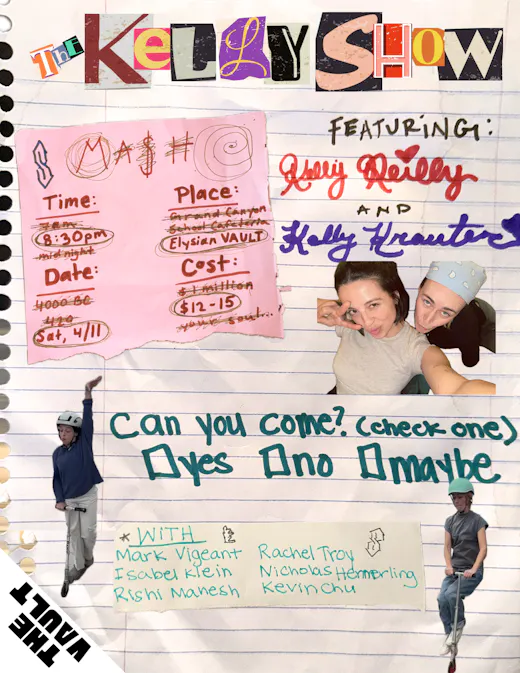 The Kelly Show
FEATURING:
Kelly Reilly
AND
Kelly Krauter
MA$H
Time:
7am
8:30pm
midnight
Date:
4000 BC
420
Sat, 4/11
Place:
Grand Canyon
School Cafeteria
Elysian VAULT
Cost:
$1 million
$12-15
your soul...
Can you come? (check one)
yes no maybe
* WITH
Mark Vigeant
Isabel Klein
Rishi Mahesh
Rachel Troy
Nicholas Hemerling
Kevin Chu
THE
VAULT